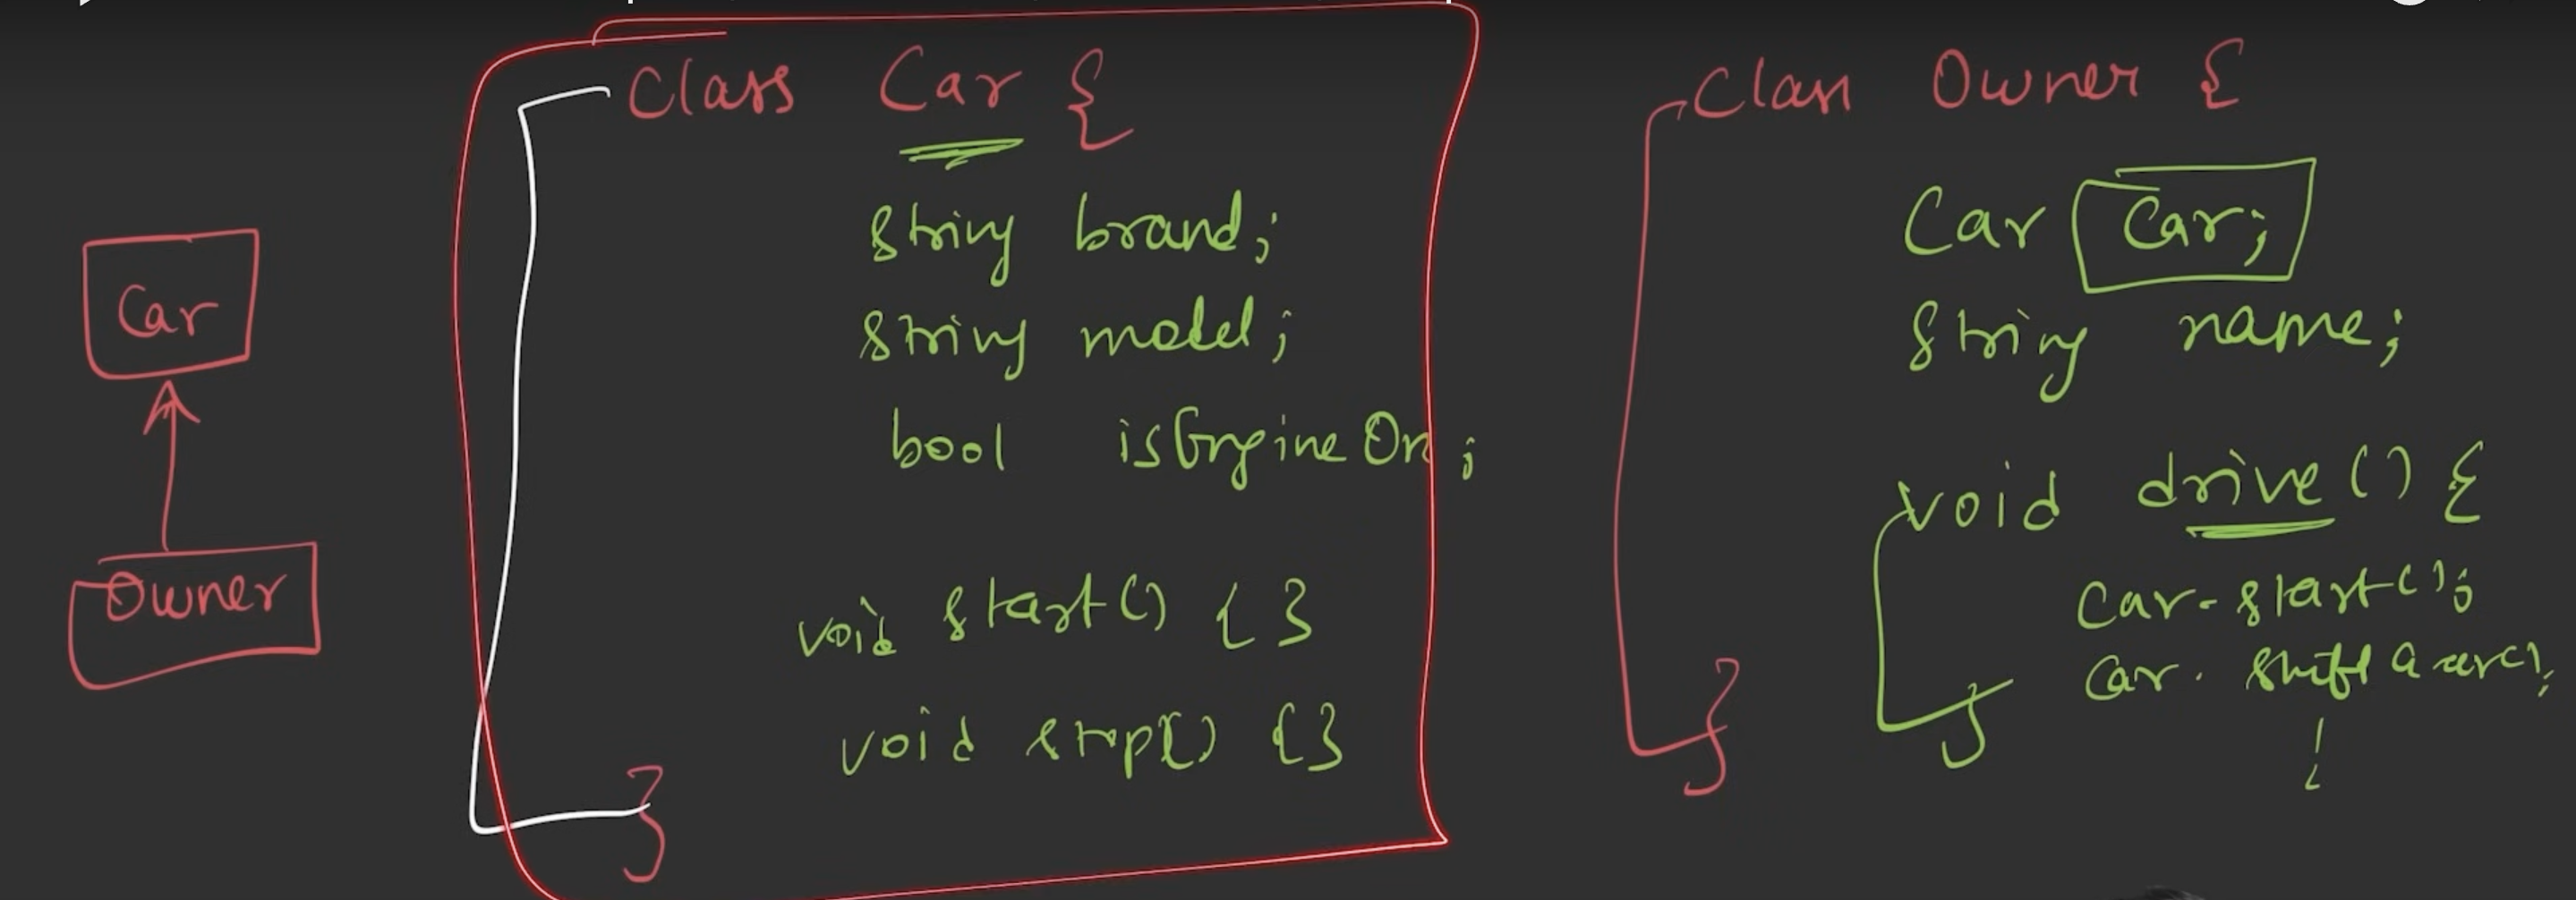 Car
Owner
Class Car {
string brand;
string model;
bool isEngineOn;
void start() { }
void stop() { }
}
Class Owner {
Car Car;
string name;
void drive() {
Car.start();
Car. shiftGear();
}
}